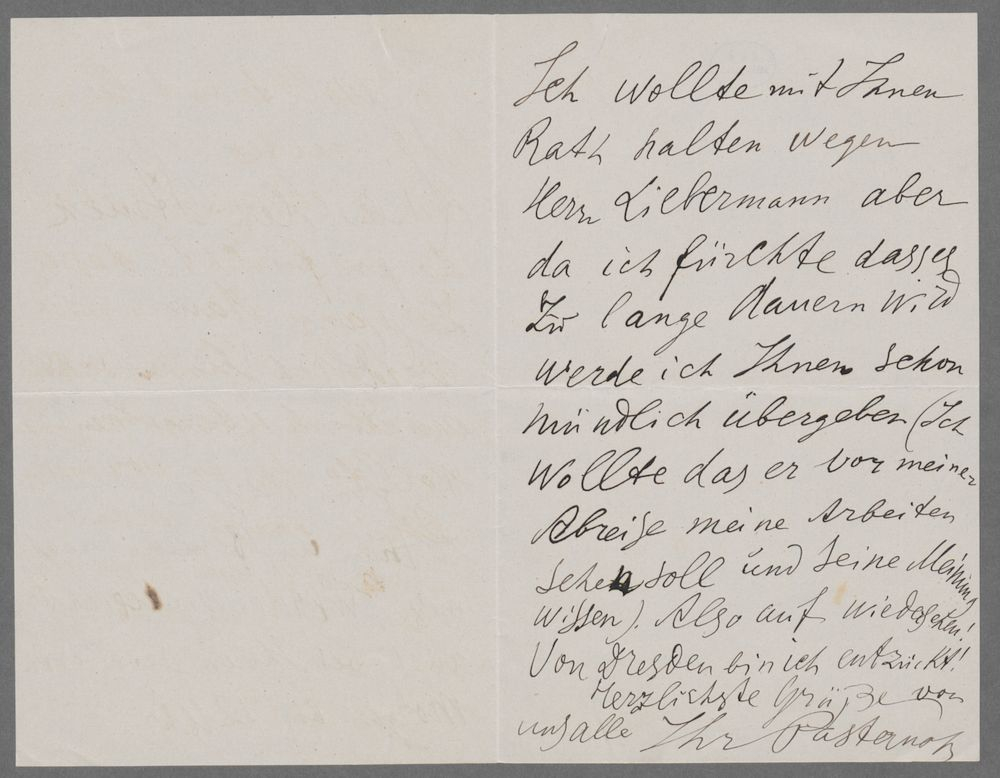 Ich wollte mit Ihnen
Rath halten wegen
Herrn Liebermann aber
da ich fürchte dass es
zu lange dauern wird
werde ich Ihnen schon
mündlich übergeben (Ich
wollte das er vor meiner
Abreise meine Arbeiten
sehen soll und seine Meinung
wissen). Also auf wiedersehen!
Von Dresden bin ich entzückt!
Herzlichste Grüße von
uns alle Ihr Pasternak